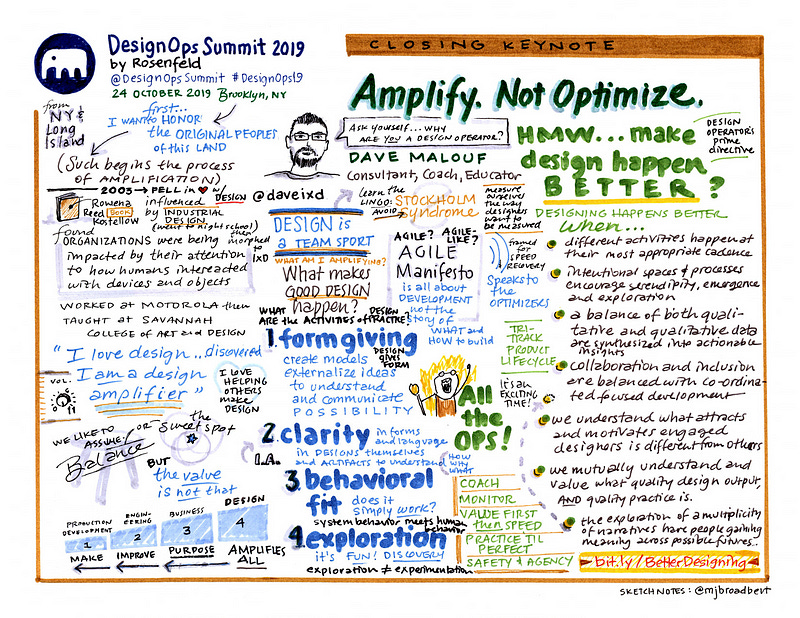 DesignOps Summit 2019
by Rosenfeld
@DesignOpsSummit #DesignOps19
24 OCTOBER 2019 Brooklyn, NY
CLOSING KEYNOTE
Amplify. Not Optimize.
from
NY &
Long
Island
first...
I WANT to HONOR
the ORIGINAL PEOPLES
of this LAND
(Such begins the process
of AMPLIFICATION)
2003 → FELL in ♥ w/
DESIGN
Rowena
Reed
Kostellow
BOOK
influenced
by INDUSTRIAL
DESIGN
(went to night school)
then
morphed
to
IxD
found
ORGANIZATIONS were being
impacted by their attention
to how humans interacted
with devices and objects
WORKED AT MOTOROLA then
TAUGHT AT SAVANNAH
COLLEGE OF ART AND DESIGN
"I love design... discovered
I am a design
amplifier"
VOL.
I LOVE
HELPING
OTHERS
MAKE
DESIGN
WE LIKE TO
ASSUME!
Balance
OR the
"sweet spot"
BUT
the value
is not that
PRODUCTION
DEVELOPMENT
1
MAKE
ENGIN-
EERING
2
IMPROVE
BUSINESS
3
PURPOSE
DESIGN
4
AMPLIFIES
ALL
ASK YOURSELF... WHY
ARE YOU A DESIGN OPERATOR?
DAVE MALOUF
Consultant, Coach, Educator
@daveixd
learn the
LINGO:
AVOID
STOCKHOLM
Syndrome
measure
ourselves
the way
designers
want to
be measured
DESIGN is
a TEAM SPORT
WHAT AM I AMPLIFYING?
What makes
GOOD DESIGN
happen?
WHAT
ARE THE ACTIVITIES of
DESIGN
PRACTICE?
AGILE? AGILE-
LIKE?
AGILE
Manifesto
is all about
DEVELOPMENT
not the
story of
WHAT and
HOW to build
framed
for
SPEED
RECOVERY
Speaks to
the
OPTIMIZERS
1. form giving
DESIGN
gives
FORM
create models
externalize ideas
to understand
and communicate
POSSIBILITY
2. clarity
in forms
and language
in DESIGNS themselves
and ARTIFACTS to understand
HOW
WHY
WHAT
I.A.
3. behavioral
fit
does it
simply work?
system behavior meets human
behavior
4. exploration
it's FUN! DISCOVERY
exploration ≠ experimentation
TRI-
TRACK
PRODUCT
LIFECYCLE
It's AN
EXCITING
TIME!
All
the
OPS!
COACH
MONITOR
VALUE FIRST
then SPEED
PRACTICE TIL
PERFECT
SAFETY & AGENCY
HMW... make
design happen
BETTER?
DESIGN
OPERATOR'S
prime
directive
DESIGNING HAPPENS BETTER
when...
different activities happen at
their most appropriate cadence
intentional spaces & processes
encourage serendipity, emergence
and exploration
a balance of both quali-
tative and qualitative data
are synthesized into actionable
insights
collaboration and inclusion
are balanced with co-ordina-
ted focused development
we understand what attracts
and motivates engaged
designers is different from others
we mutually understand and
value what quality design output,
AND quality practice is.
the exploration of a multiplicity
of narratives have people gaining
meaning across possible futures..
bit.ly/BetterDesigning
SKETCHNOTES: @mjbroadbent